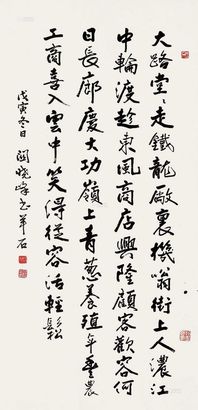 大路堂堂走鐵龍廠裏機嗡街上人濃江
中輪渡趁東風商店興隆顧客歡容何
日長廊慶大功嶺上青蔥養殖年豐農
工商喜入雲中笑得從容活輕鬆
戊寅冬日 書羊石